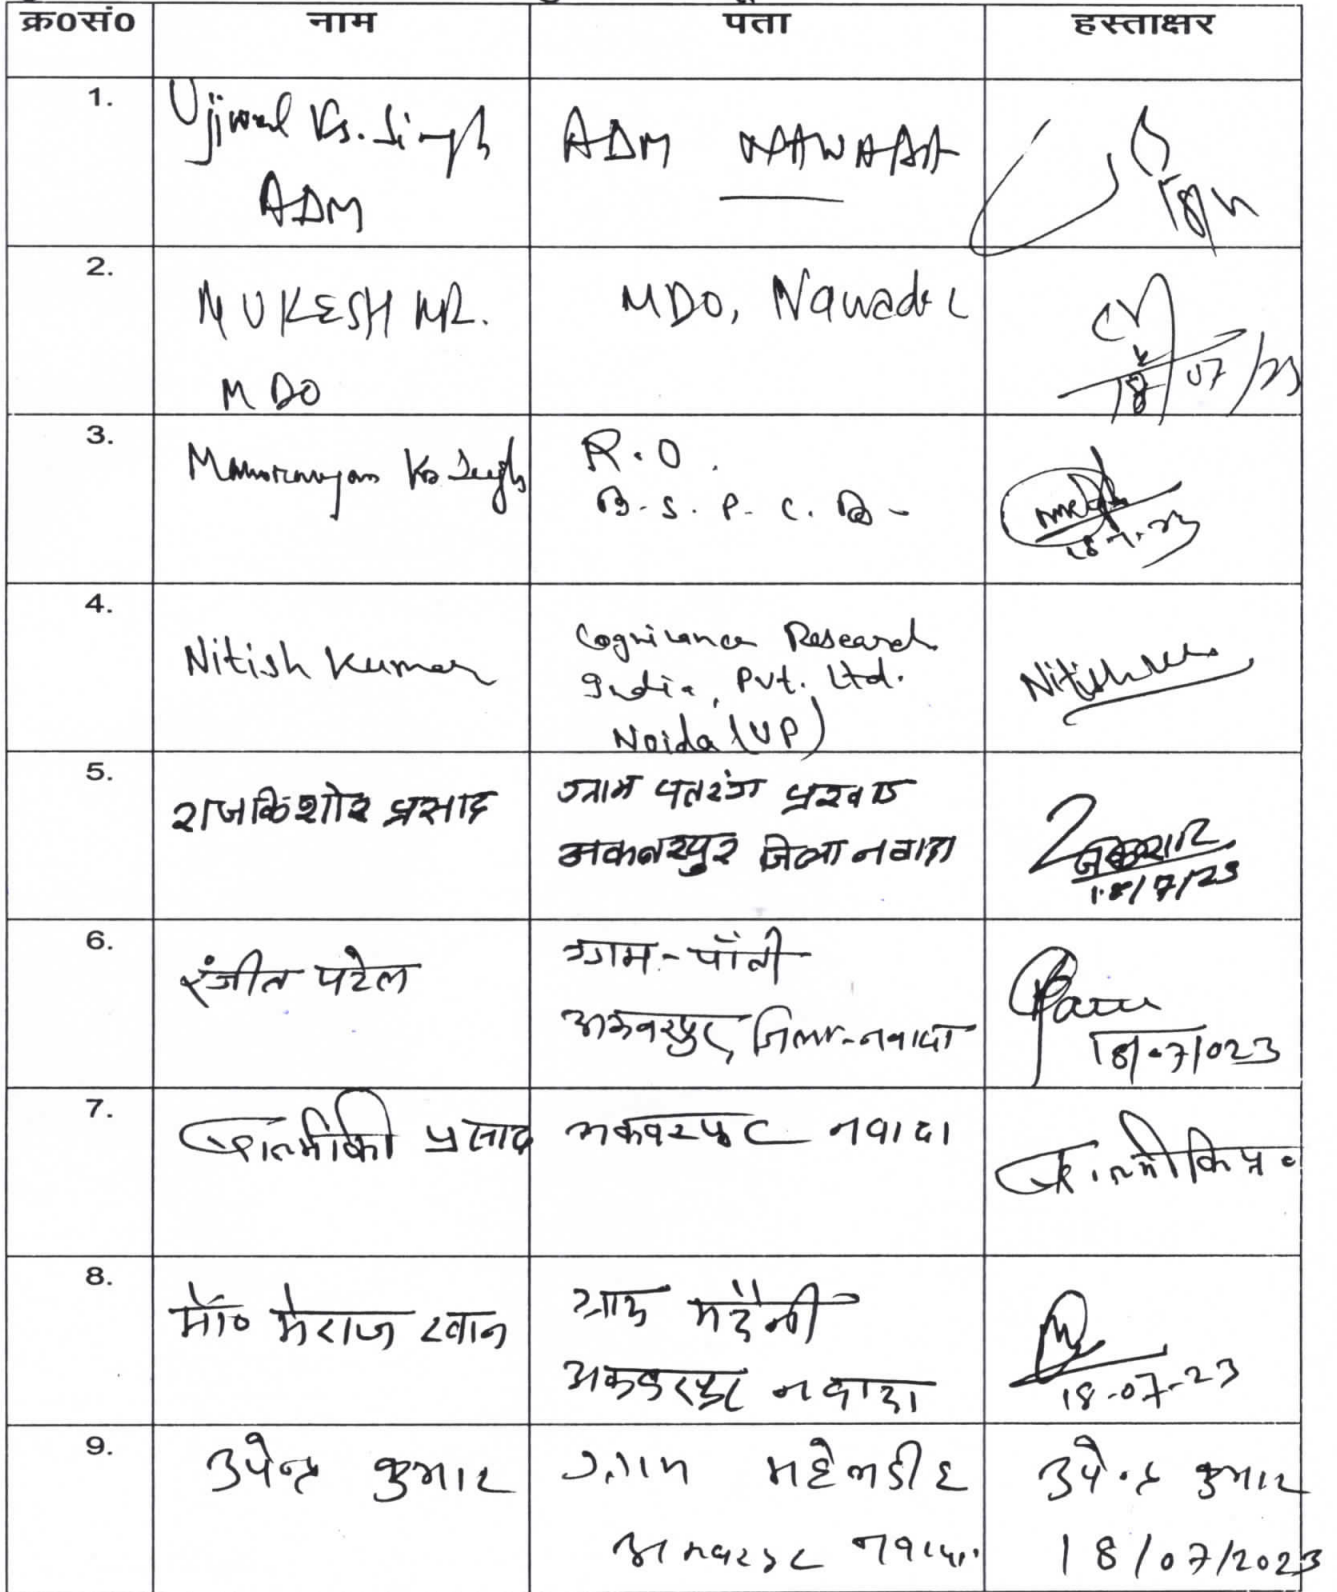 क्र०सं० नाम पता हस्ताक्षर
1.
Ujjwal Kr. Singh
ADM
ADM NAWADA
2.
MUKESH KR.
MDO
MDO, Nawada
18/07/23
3.
Manoranjan Kr Singh
R.O.
B.S.P.C.B-
18.7.23
4.
Nitish Kumar
Cognizance Research
India, Pvt. Ltd.
Noida (UP)
5.
राजकिशोर प्रसाद
ग्राम पतरंग प्रखण्ड
अकबरपुर जिला नवादा
18/7/23
6.
रंजीत पटेल
ग्राम-पाँती
अकबरपुर, जिला-नवादा
18/07/023
7.
बाल्मीकी प्रसाद
अकबरपुर नवादा
8.
मो० मेराज खान
ग्राम
अकबरपुर नवादा
18-07-23
9.
उपेन्द्र कुमार
ग्राम
अकबरपुर नवादा
उपेन्द्र कुमार
18/07/2023